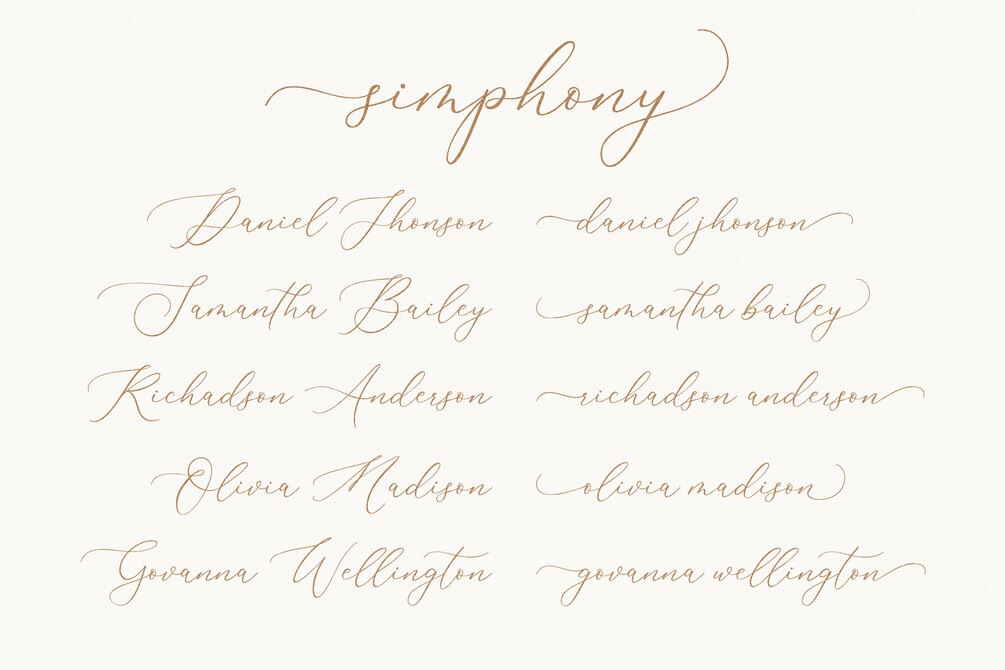 simphony
Daniel Jhonson daniel jhonson
Samantha Bailey samantha bailey
Richadson Anderson richadson anderson
Olivia Madison olivia madison
Govanna Wellington govanna wellington